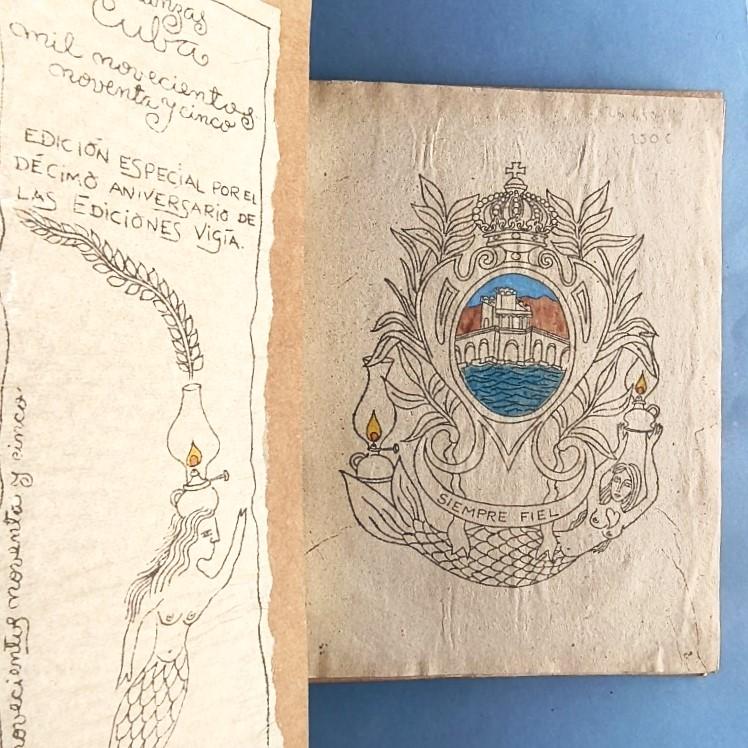 Cuba
mil novecientos
noventa y cinco
EDICIÓN ESPECIAL POR EL
DÉCIMO ANIVERSARIO DE
LAS EDICIONES VIGÍA.
novecientos noventa y cinco
SIEMPRE FIEL